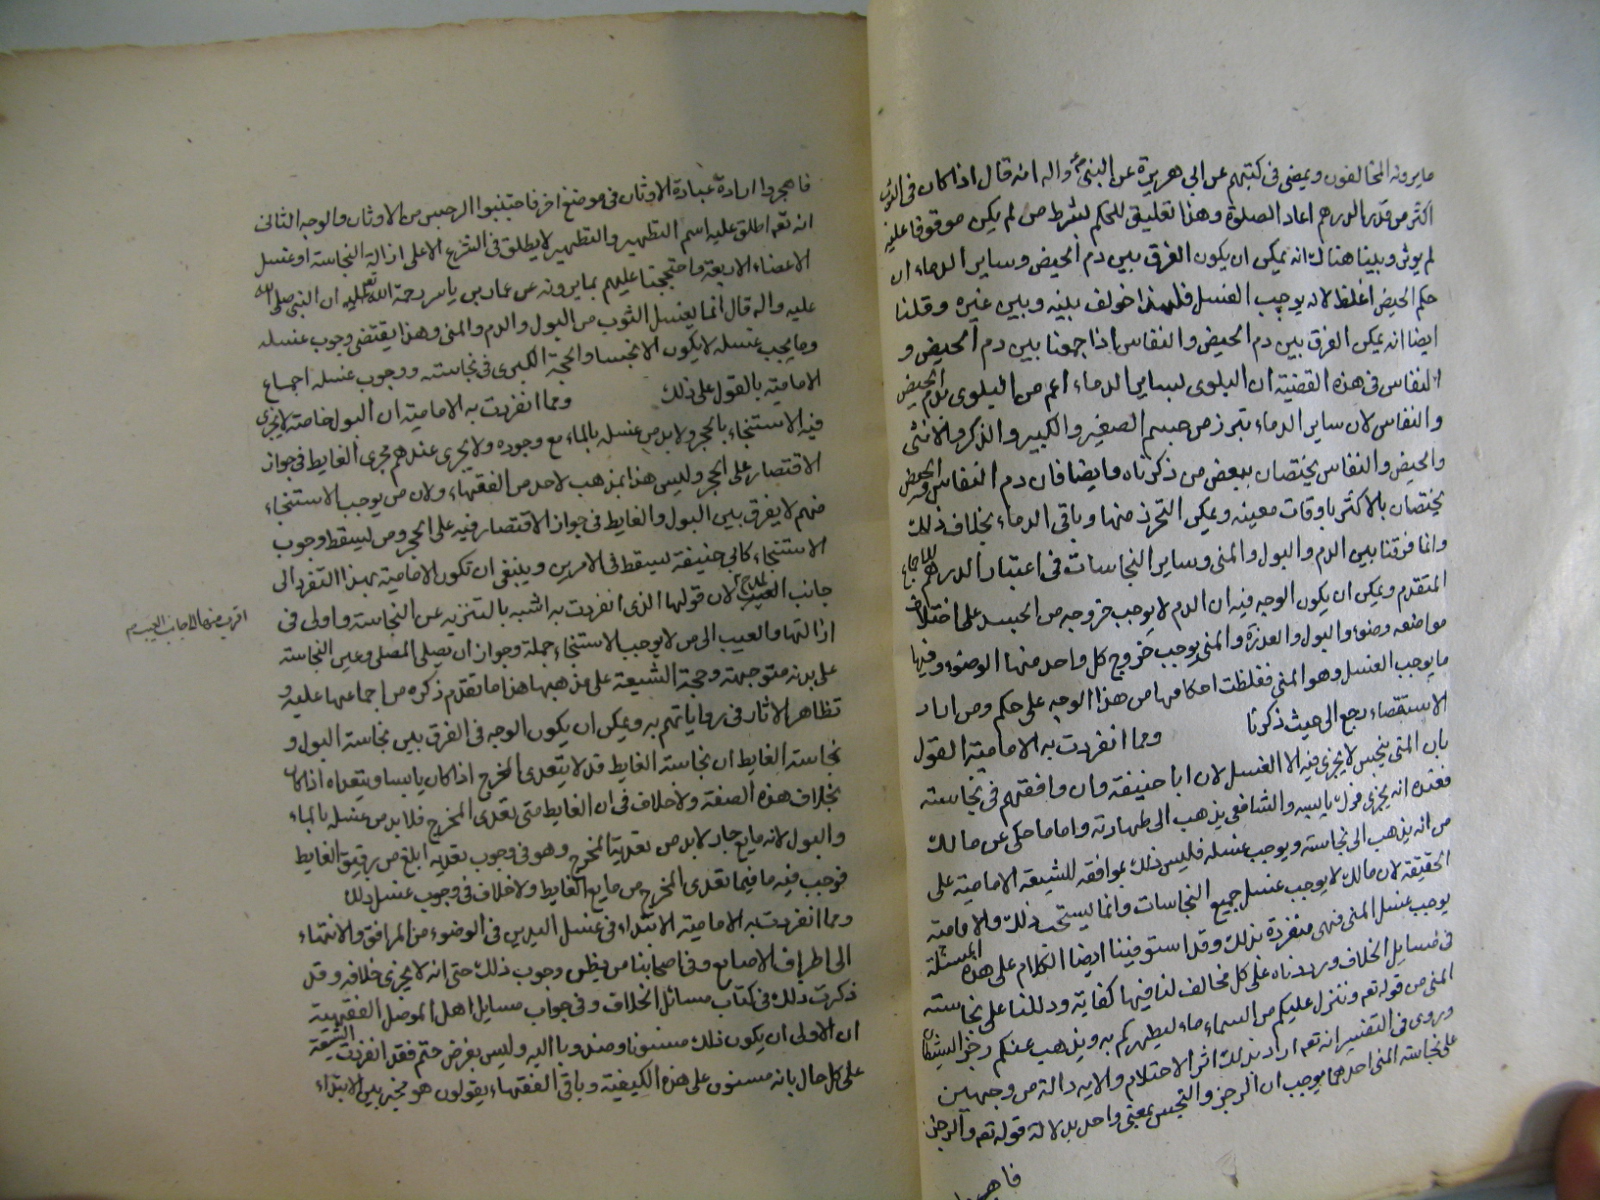 ما يرونه المخالفون ويمضى فى كتبهم عن ابى هريرة عن النبى ع واله انه قال اذا كان فى الثوب
اكثر من قدر الدرهم اعاد الصلوة وهذا تعليق للحكم بشرط من لم يكن موقوفا عليه
لم يوثر وبينا هناك انه يمكن ان يكون الفرق بين دم الحيض وساير الدماء ان
حكم الحيض اغلظ لانه يوجب الغسل فلهذا خولف بينه وبين غيره وقلنا
ايضا انه يمكن الفرق بين دم الحيض والنفاس اذا جمعنا بين دم الحيض و
النفاس فى هذه القضية ان البلوى بساير الدماء اعم من البلوى بدم الحيض
والنفاس لان ساير الدماء تبرز من جسم الصغير والكبير والذكر والانثى
والحيض والنفاس يختصان ببعض من ذكرناه وايضا فان دم النفاس والحيض
يختصان بالاكثر باوقات معينه ويمكن التحرز منها وباقى الدماء بخلاف ذلك
وانما فرقنا بين الدم والبول والمنى وساير النجاسات فى اعتبار الدرهم للاجماع
المتقدم ويمكن ان يكون الوجه فيه ان الدم لا يوجب خروجه من الجسد على اختلاف
مواضعه وضوء والبول والعذرة والمنى يوجب خروج كل واحد منها الوضوء وفيها
ما يوجب الغسل وهو المنى فغلظت احكامها من هذا الوجه على حكم ومن اراد
الاستقصاء رجع الى حيث ذكرنا ومما انفردت به الامامية القول
بان المنى نجس لا يجزى فيه الا الغسل لان ابا حنيفة وان وافقهم فى نجاسته
فعنده انه يجزى فرك يابسه والشافعى يذهب الى طهارته واما ما حكى عن مالك
من انه يذهب الى نجاسته ويوجب غسله فليس ذلك بموافقه للشيعة الامامية على
الحقيقة لان مالك لا يوجب غسل جميع النجاسات وانما يستحب ذلك والامامية
يوجب غسل المنى فهى منفردة بذلك وقد استوفينا ايضا الكلام على هذه المسئلة
فى مسايل الخلاف ورددناه على كل مخالف لنا فيها كفاية ودللنا على نجاسته
المنى من قوله تعه وننزل عليكم من السماء ماء ليطهركم به ويذهب عنكم رجز الشيطان
وروى فى التفسير انه تعه اراد بذلك اثر الاحتلام والايه دالة من وجهين
على نجاسة المنى احدهما يوجب ان الرجز والنجس بمعنى واحد بدلالة قوله تعه والرجز
فاهجر
فاهجر وا اراد به عبادة الاوثان فى موضع اخر فاجتنبوا الرجس من الاوثان والوجه الثانى
انه تعه اطلق عليه اسم التطهير والتطهير لا يطلق فى الشرع الا على ازالة النجاسة او غسل
الاعضاء الاربعة واحتججنا عليهم بما يرونه عن عمار بن ياسر رحمة الله عليه ان النبى صلى الله
عليه واله قال انما يغسل الثوب من البول والدم والمنى وهذا يقتضى وجوب غسله
وما يجب غسله لا يكون الا نجسا والحجة الكبرى فى نجاسته ووجوب غسله اجماع
الامامية بالقول على ذلك ومما انفردت به الامامية ان البول خاصة لا يجزى
فيه الاستنجاء بالحجر ولا بد من غسله بالماء مع وجوده ولا يجرى عندهم مجرى الغايط فى جواز
الاقتصار على الحجر وليس هذا بمذهب لاحد من الفقهاء ولان من يوجب الاستنجاء
منهم لا يفرق بين البول والغايط فى جواز الاقتصار فيه على الحجر ومن يسقط وجوب
الاستنجاء كابى حنيفة يسقط فى الامرين وينبغى ان تكون الامامية بهذا التفرد الى
جانب العيب لان قولها الذى انفردت به اشبه بالتنزيه عن النجاسة واولى فى
ازالتها والعيب الى من لا يوجب الاستنجاء جملة وجواز ان يصلى المصلى وعين النجاسة
على بدنه متوجهة وحجة الشيعة على مذهبها هذا ما تقدم ذكره من اجماعها عليه و
تظاهر الاثار فى رواياتهم به ويمكن ان يكون الوجه فى الفرق بين نجاسة البول و
نجاسة الغايط ان نجاسة الغايط قد لا يتعدى المخرج اذا كان يابسا ويتعداه اذا كان
بخلاف هذه الصفة ولا خلاف فى ان الغايط متى تعدى المخرج فلا بد من غسله بالماء
والبول لانه مايع جار لا بد من تعديه المخرج وهو فى وجوب تعديه ابلغ من رقيق الغايط
فوجب فيه ما فيما تعدى المخرج من مايع الغايط ولا خلاف فى وجوب غسل ذلك
ومما انفردت به الامامية الابتداء فى غسل اليدين فى الوضوء من المرافق والانتهاء
الى اطراف الاصابع وفى اصحابنا من يظن وجوب ذلك حتى انه لا يجزى خلافه وقد
ذكرت ذلك فى كتاب مسائل الخلاف وفى جواب مسايل اهل الموصل الفقهية
ان الاولى ان يكون ذلك مسنونا ومندوبا اليه وليس بفرض حتم فقد انفردت الشيعة
على كل حال بانه مسنون على هذه الكيفية وباقى الفقهاء يقولون هو مخير بين الابتداء